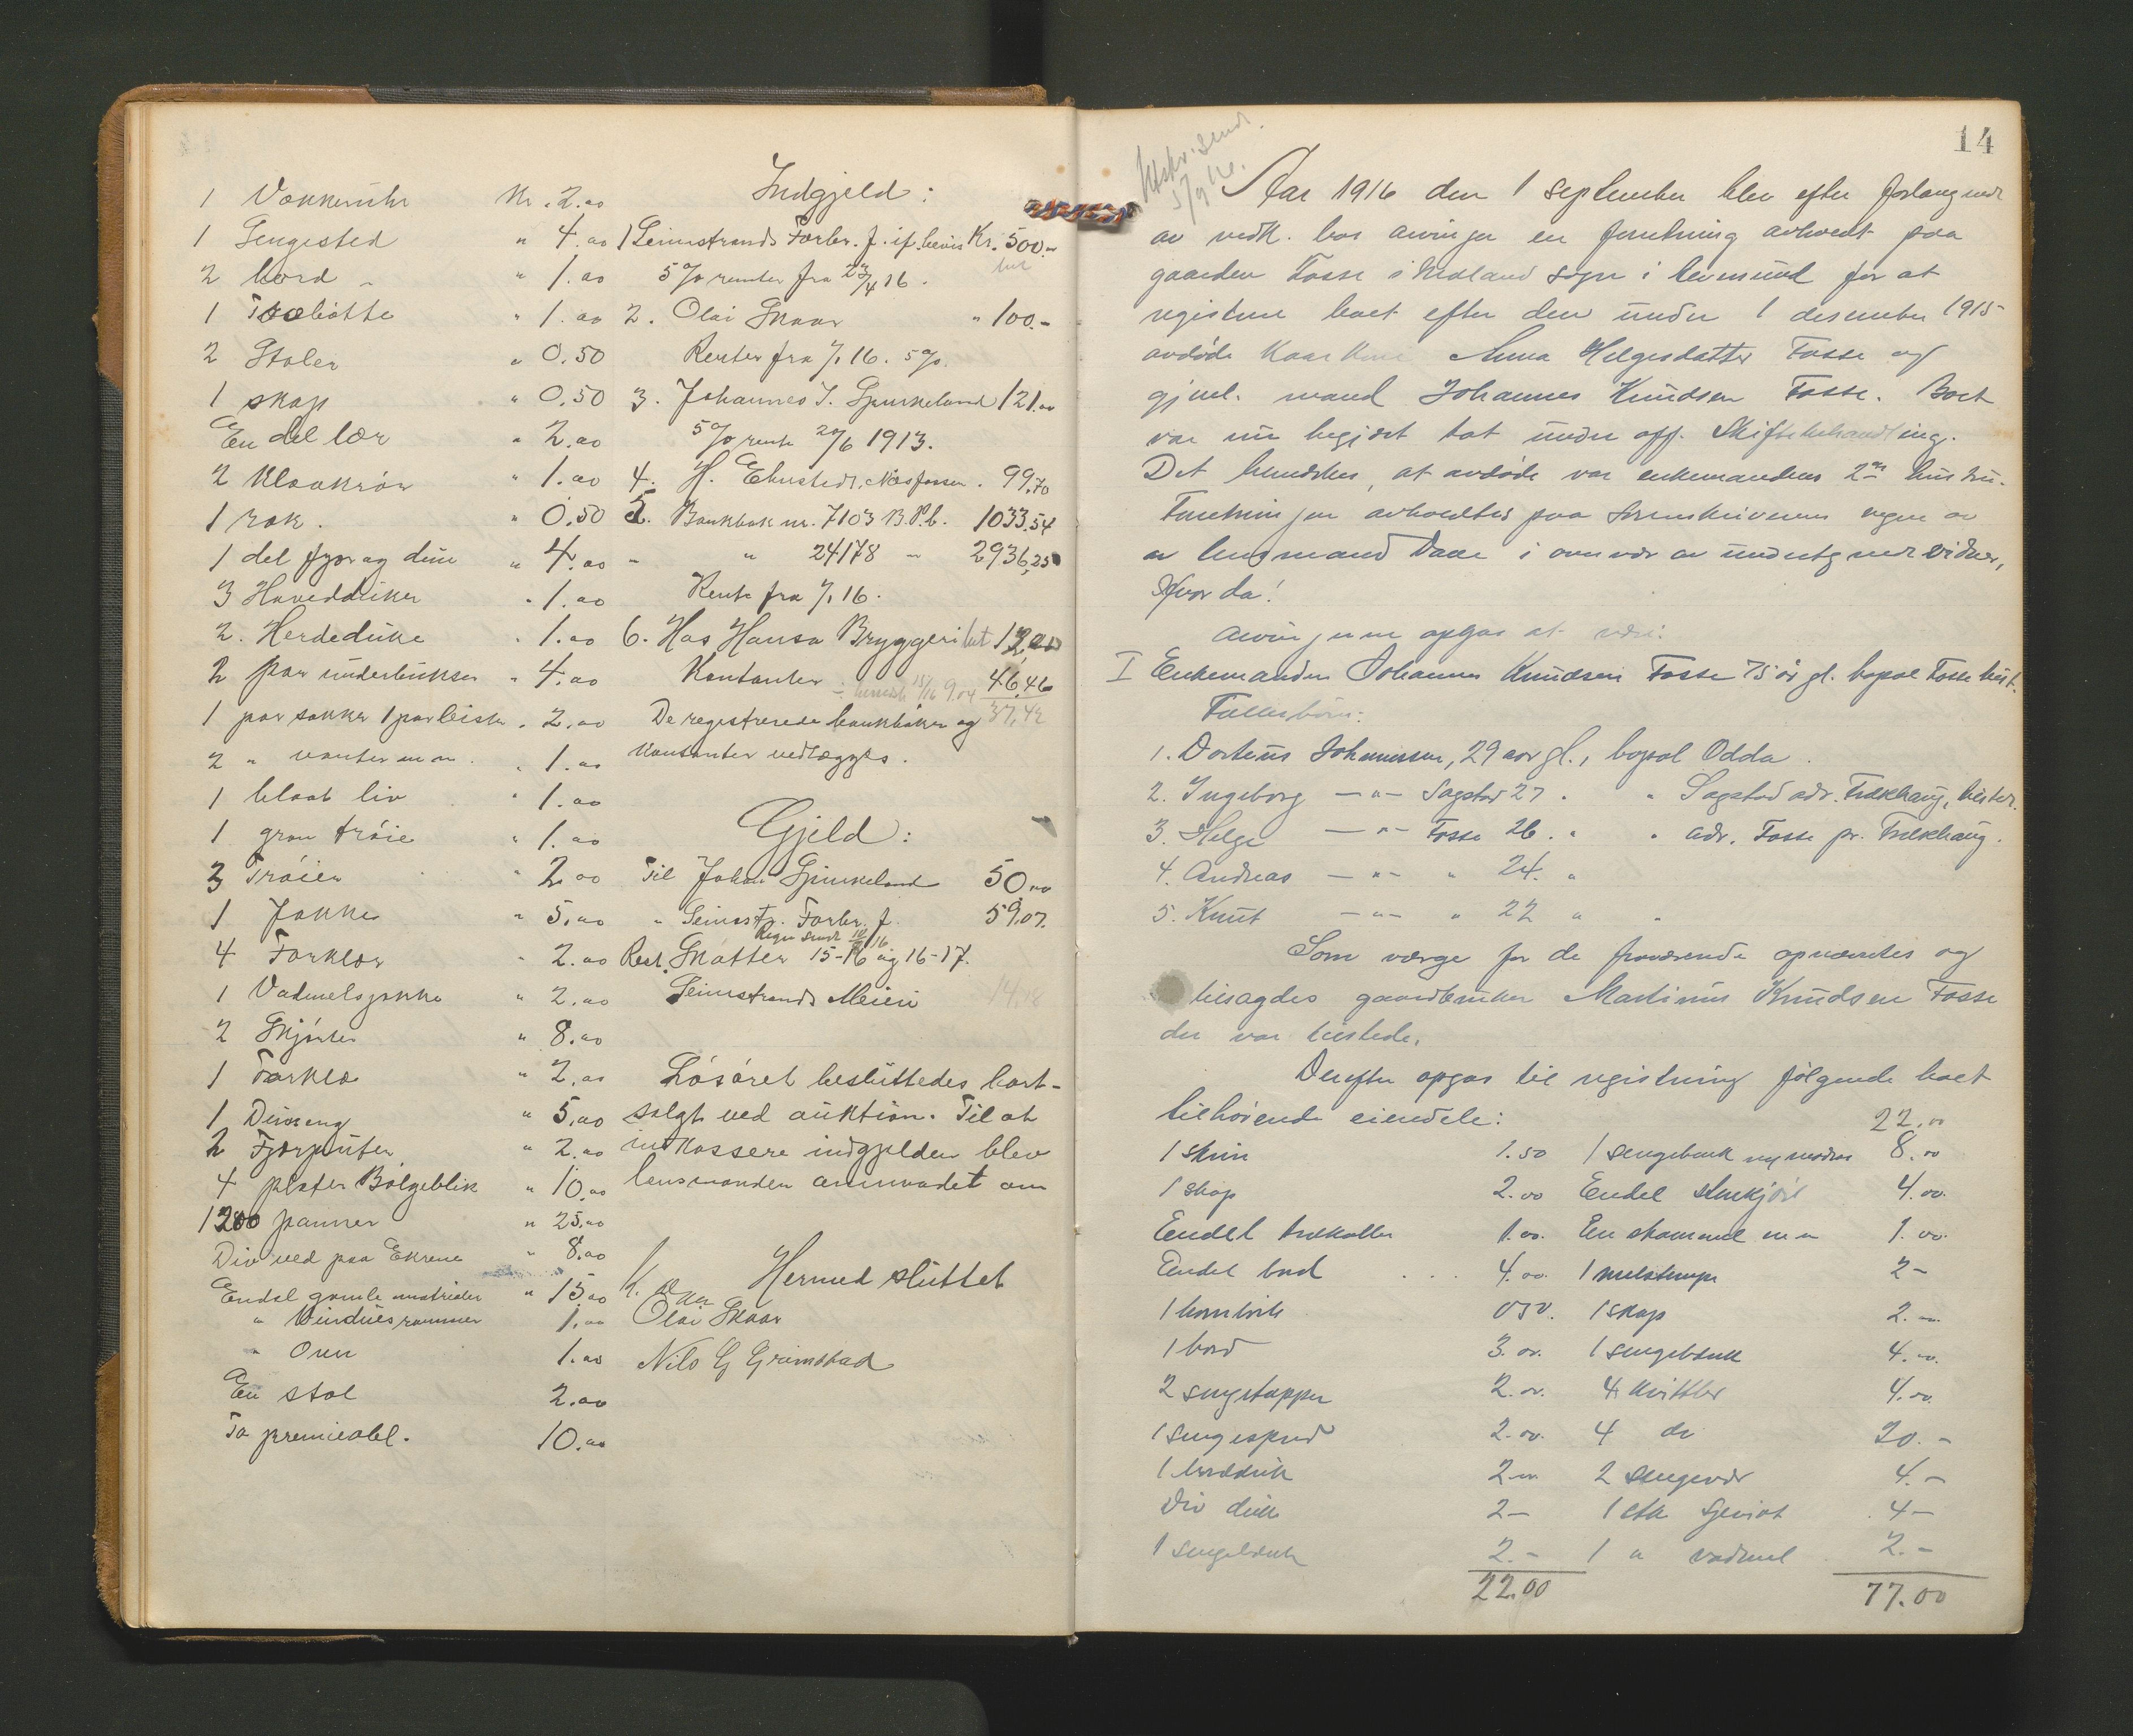 1 Vækkeruhr Kr. 2.00
1 Sengested " 4.00
2 bord " 1.00
1 Træbøtte " 1.00
2 Stoler " 0.50
1 skap " 0.50
En del lær " 2.00
2 Klaakrör " 1.00
1 rok. " 0.50
1 del fjær og dun " 4.00
3 Hoveddüker " 1.00
2. Herdedüke " 1.00
2 par ünderbükser " 4.00
1 par sokker 1 par leister " 2.00
2 " vanter m m. " 1.00
1 blaat liv " 1.00
1 graa tröie " 1.00
3 Tröier " 2.00
1 Jakke " 5.00
4 Forklær " 2.00
1 Vadmelsjakke " 2.00
2 Skjörter " 8.00
1 Forklæ " 2.00
1 Düneng " 5.00
2 Fjærpüter " 2.00
4 plater Bölgeblik " 10.00
1200 panner " 25.00
Div ved paa Ekrene " 8.00
Endel gamle matrialer " 15.00
" Vindüesrammer 1.00
" Ovn 1.00
En stol 2.00
To premieobl. 10.00
Indgjeld:
1 Seimstrands Forbr. f. if. bevis Kr. 500.-
5 % renter fra 23/4 16.
2. Olai Skaar " 100.-
Renter fra 1/1 16. 5 %.
3. Johannes J. Spurkeland 121.00
5 % rente 20/6 1913.
4. H. 99,70
5. Bankbok nr. 7103 B.P.b. 1033.54
" " 24178 " 2936,25
Rente fra 1/1 16.
6. Hos Hansa Bryggeri 12,00
Kontanter 46,46
15/16 9.04
37,42
De registrerede bankbøker og
kontanter vedlægges.
Gjeld:
Til Johan Spurkeland 50,00
" Seimsstr. Forbr. f. 59,07.
Regn send 16
Rest. Skatter 15-16 og 16-17.
Seimstrands Meieri 14,18
Lösöret beslüttedes bort-
solgt ved auktion. Til at
inkassere indgjelden blev
lensmanden anmodet om
Hermed slüttet
Olai Skaar
Nils G Grimstad
14
Utskr. sendt
5/9 16.
Aar 1916 den 1 september blev efter forlangende
av vedk. hos arvinger en forretning avholdt paa
gaarden Fosse i sogn i for at
registrere boet efter den under 1 desember 1915
avdöde Kaarkone Anna Helgesdatter Fosse og
gjenl. mand Johannes Knudsen Fosse. Boet
var nu begjært tat under off. Skiftebehandling.
Det bemerkes, at avdöde var enkemandens 2den hustru.
Forretningen avholdtes paa Sorenskriverens vegne av
av lensmand Daae i overvær av undertegnede vidner,
Hvorda!
Arvingerne opgas at være:
I Enkemanden Johannes Knudsen Fosse 75 år gl. bopæl Fosse
Fællesbörn:
1. Dorteus Johannessen, 29 aar gl., bopæl Odda.
2. Ingeborg —"— Sagstad 27 " " Sagstad adr. Frekhaug,
3. Helge —"— Fosse 26 " " adr. Fosse pr. Frekhaug.
4. Andreas —"— " 24. "
5. Knut —"— " 22 " "
Som værge for de fraværende opnævntes og
tilsagdes gaardbruker Martinus Knudsen Fosse
der var tilstede.
Derefter opgas til registrering fölgende boet
tilhörende eiendele:
22.00
1 skrin 1.50 1 sengebenk 8.00
1 skap 2.00 Endel stenkjöril 4.00
Endel trekoller 1.00. En skammel m m 1.00
Endel bord 4.00. 1 melstamp 2-
1 050. 1 skap 2.-
1 bord 3.00. 1 sengebenk 4.00.
2 sengetepper 2.00. 4 kvittler 4.00
1 sengespred 2.00. 4 do 20.-
1 borddük 2- 2 sengevær 4.-
Div dük 2- 1 stk sjeviot 4-
1 sengebenk 2.- 1 " vadmel 2.-
22.00 77.00